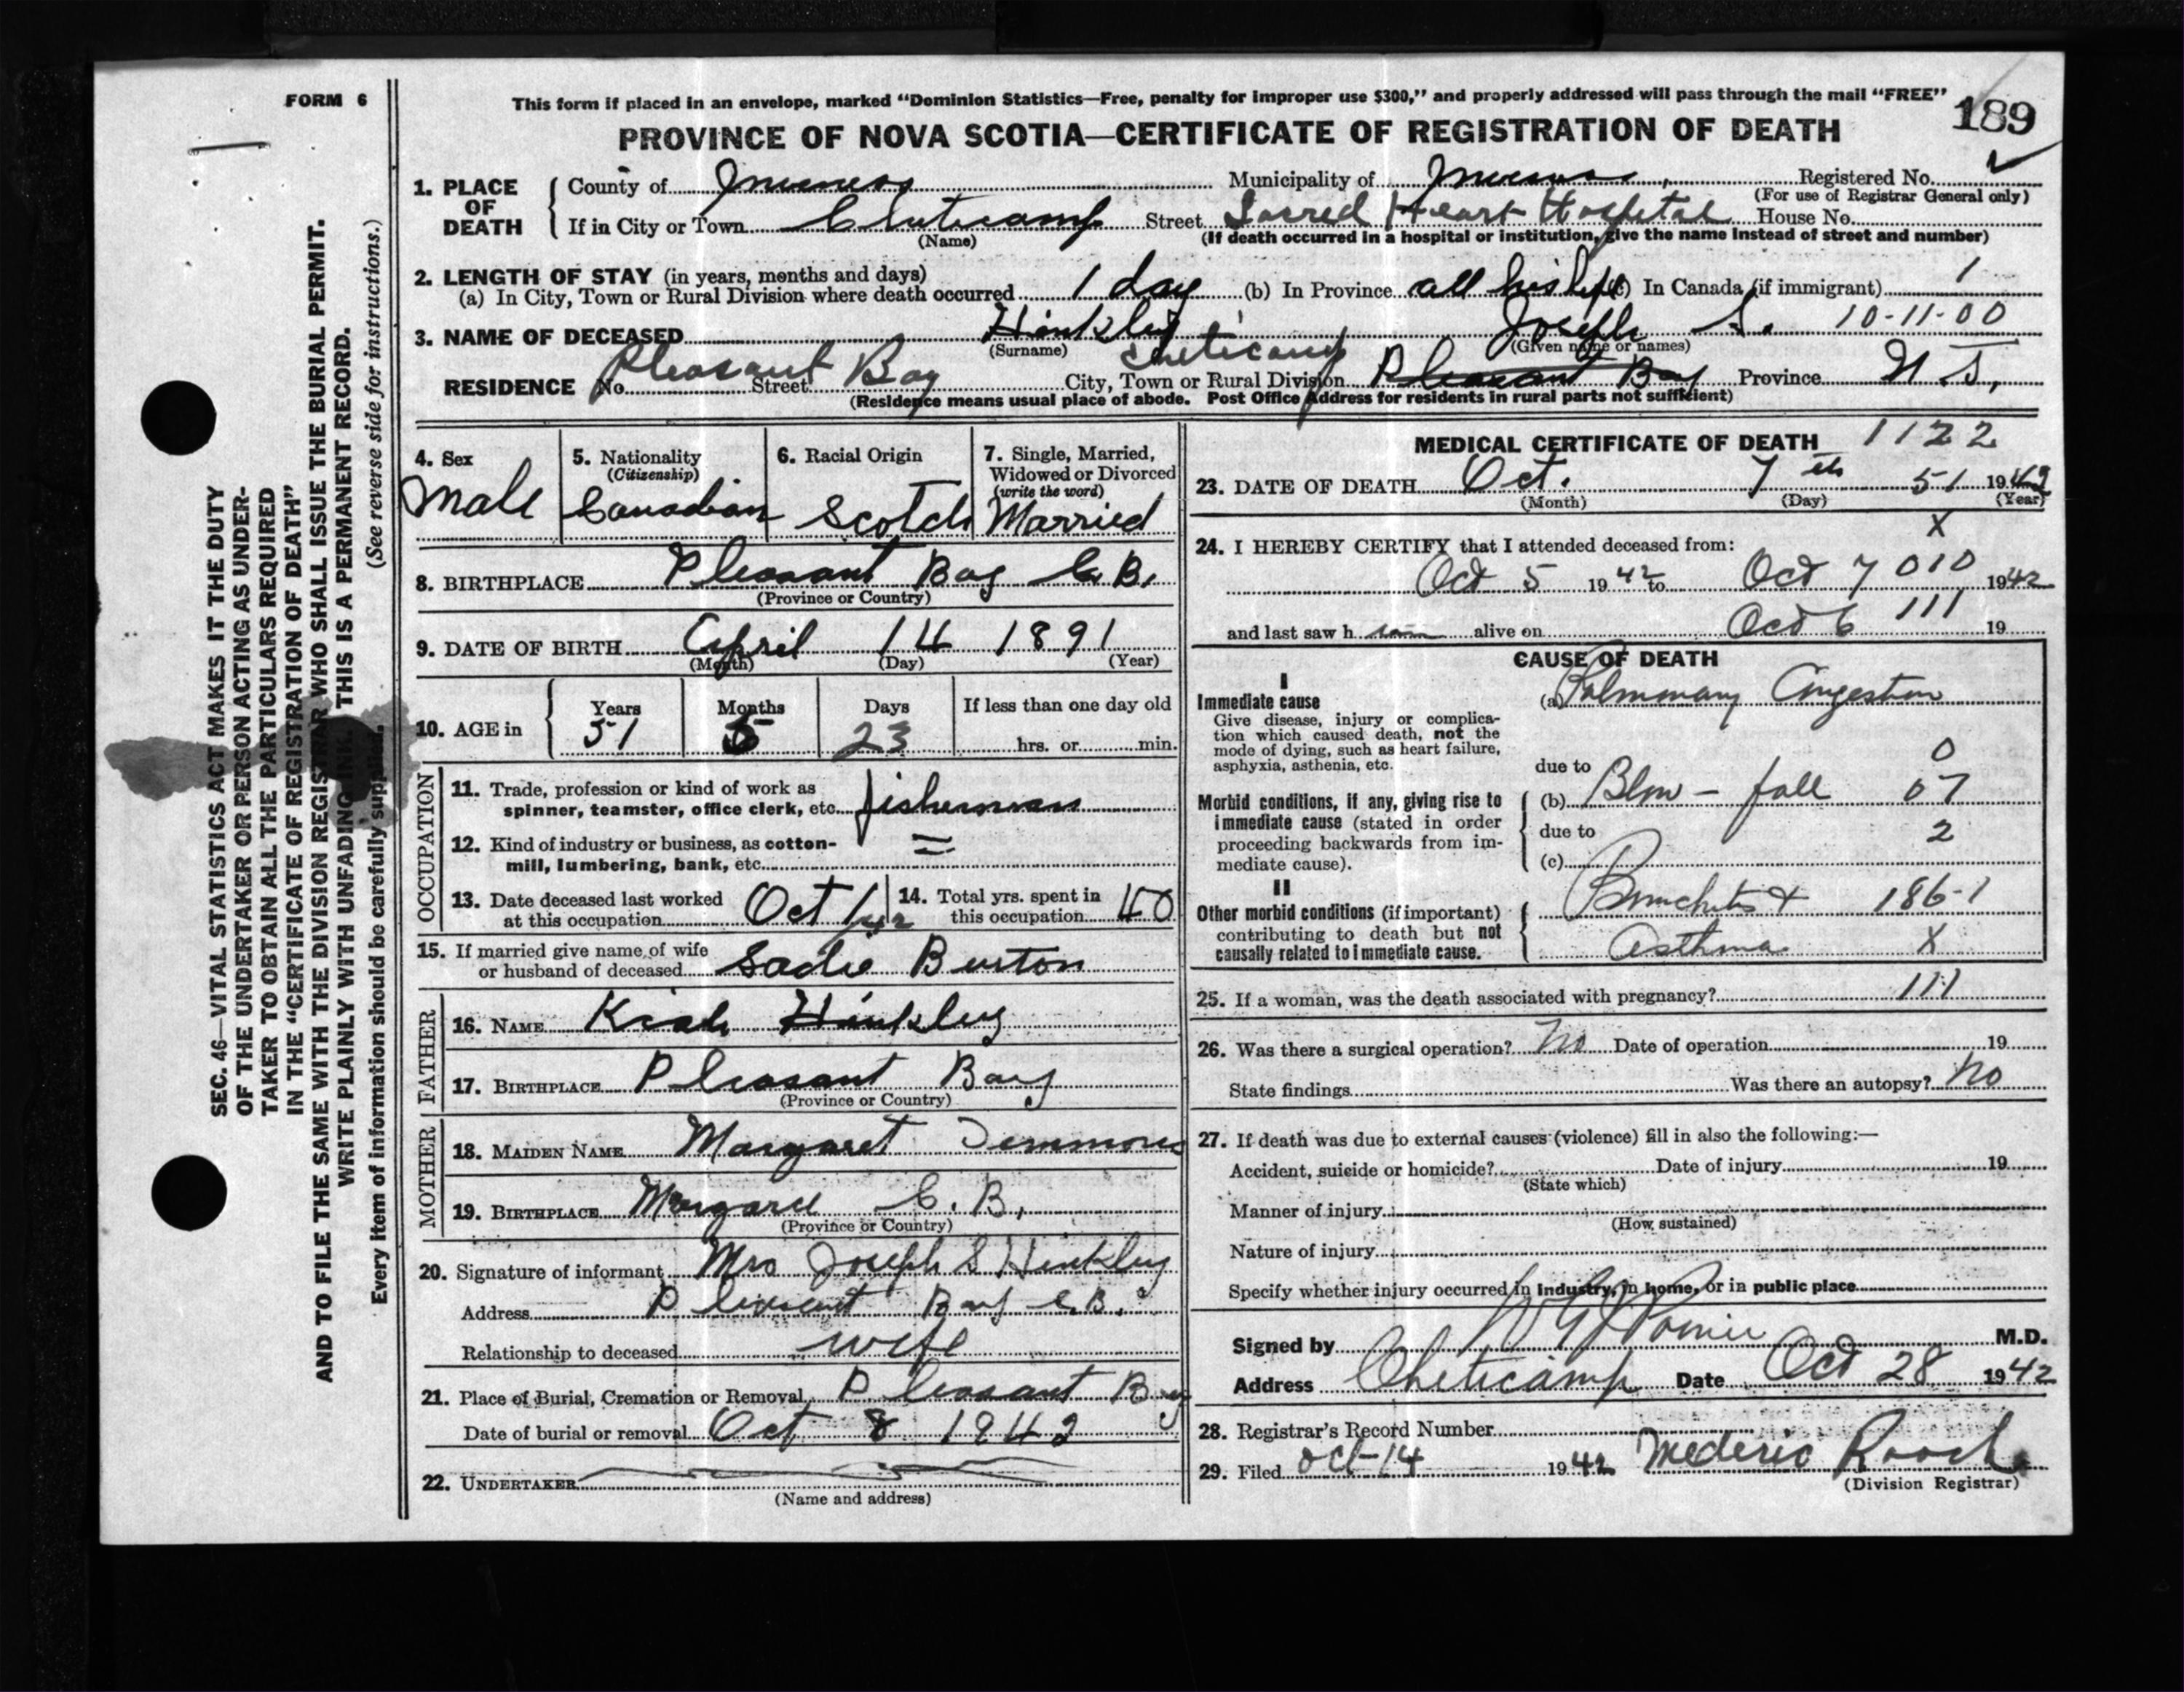 FORM 6
This form if placed in an envelope, marked “Dominion Statistics—Free, penalty for improper use $300,” and properly addressed will pass through the mail “FREE”
189
PROVINCE OF NOVA SCOTIA—CERTIFICATE OF REGISTRATION OF DEATH
1. PLACE OF DEATH
County of Inverness Municipality of Inverness Registered No.
(For use of Registrar General only)
If in City or Town Cheticamp Street Sacred Heart Hospital House No.
(Name) (If death occurred in a hospital or institution, give the name instead of street and number)
2. LENGTH OF STAY (in years, months and days)
(a) In City, Town or Rural Division where death occurred 1 day (b) In Province all his life (c) In Canada (if immigrant) 1
3. NAME OF DECEASED Hinkley Joseph S. 10-11-00
(Surname) (Given name or names)
Cheticamp
RESIDENCE No. Pleasant Street Bay City, Town or Rural Division Pleasant Bay Province N.S.
(Residence means usual place of abode. Post Office Address for residents in rural parts not sufficient)
4. Sex
Male
5. Nationality
(Citizenship)
Canadian
6. Racial Origin
Scotch
7. Single, Married,
Widowed or Divorced
(write the word)
Married
8. BIRTHPLACE Pleasant Bay C.B.
(Province or Country)
9. DATE OF BIRTH April 14 1891
(Month) (Day) (Year)
10. AGE in
Years Months Days If less than one day old
51 5 23 hrs. or min.
OCCUPATION
11. Trade, profession or kind of work as
spinner, teamster, office clerk, etc. fisherman
12. Kind of industry or business, as cotton-
mill, lumbering, bank, etc. =
13. Date deceased last worked
at this occupation Oct 1/42
14. Total yrs. spent in
this occupation 40
15. If married give name of wife
or husband of deceased Sadie Burton
FATHER
16. NAME Kiah Hinkley
17. BIRTHPLACE Pleasant Bay
(Province or Country)
MOTHER
18. MAIDEN NAME Margaret Timmons
19. BIRTHPLACE Margaree C.B.
(Province or Country)
20. Signature of informant Mrs Joseph S Hinkley
Address Pleasant Bay C.B.
Relationship to deceased wife
21. Place of Burial, Cremation or Removal Pleasant Bay
Date of burial or removal Oct 8 1942
22. UNDERTAKER
(Name and address)
MEDICAL CERTIFICATE OF DEATH 1122
23. DATE OF DEATH Oct. 7th 51 1942
(Month) (Day) (Year)
X
24. I HEREBY CERTIFY that I attended deceased from:
Oct 5 1942 to Oct 7 010 1942
and last saw h im alive on Oct 6 111 19
CAUSE OF DEATH
I
Immediate cause
Give disease, injury or complica-
tion which caused death, not the
mode of dying, such as heart failure,
asphyxia, asthenia, etc.
(a) Pulmonary Congestion
0
due to
Morbid conditions, if any, giving rise to
immediate cause (stated in order
proceeding backwards from im-
mediate cause).
(b) Blow - fall 07
due to 2
(c)
II
Other morbid conditions (if important)
contributing to death but not
causally related to immediate cause.
Bronchitis + 186-1
Asthma X
25. If a woman, was the death associated with pregnancy? 111
26. Was there a surgical operation? No Date of operation 19
State findings Was there an autopsy? No
27. If death was due to external causes (violence) fill in also the following:—
Accident, suicide or homicide? Date of injury 19
(State which)
Manner of injury
(How sustained)
Nature of injury
Specify whether injury occurred in industry, in home, or in public place
Signed by M.D.
Address Cheticamp Date Oct 28 1942
28. Registrar's Record Number
29. Filed Oct-14 1942 Mederic Roach
(Division Registrar)
SEC. 46—VITAL STATISTICS ACT MAKES IT THE DUTY
OF THE UNDERTAKER OR PERSON ACTING AS UNDER-
TAKER TO OBTAIN ALL THE PARTICULARS REQUIRED
IN THE “CERTIFICATE OF REGISTRATION OF DEATH”
AND TO FILE THE SAME WITH THE DIVISION REGISTRAR WHO SHALL ISSUE THE BURIAL PERMIT.
WRITE PLAINLY WITH UNFADING INK. THIS IS A PERMANENT RECORD.
Every item of information should be carefully supplied. (See reverse side for instructions.)